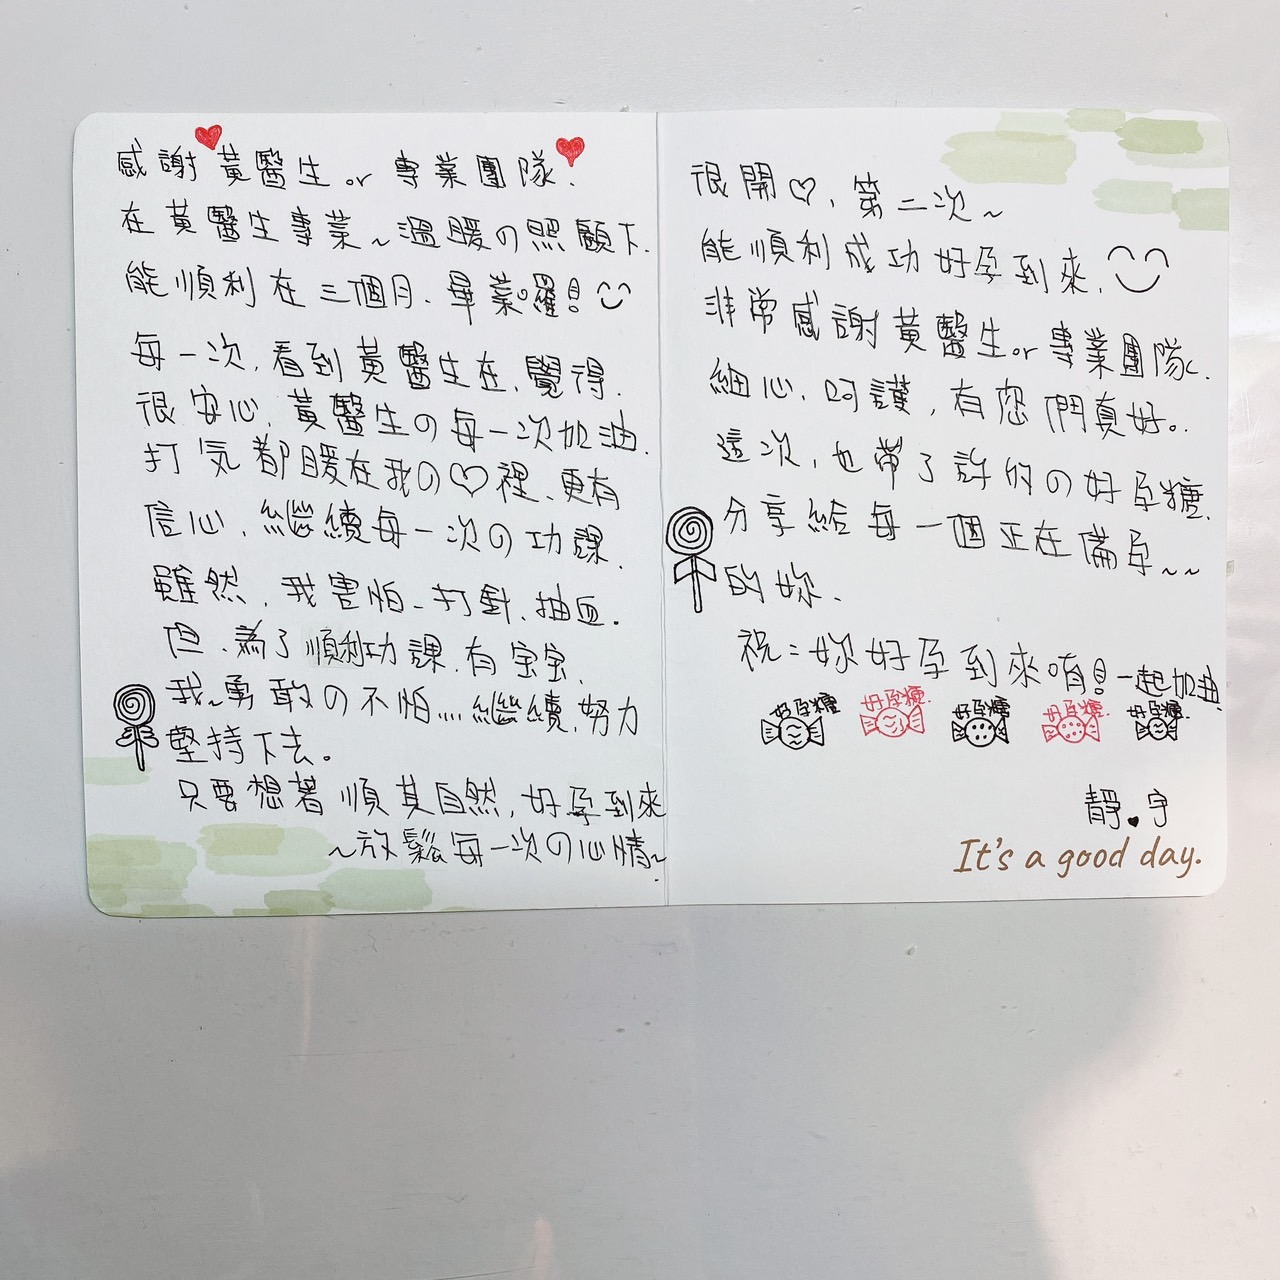 感謝黃醫生or專業團隊.
在黃醫生專業~溫暖の照顧下.
能順利在三個月.畢業囉!
每一次.看到黃醫生在.覺得.
很安心.黃醫生の每一次加油.
打気都暖在我の♡裡.更有
信心.繼續每一次の功課.
雖然.我害怕-打針.抽血.
但.為了順利功課.有宝宝.
我~勇敢の不怕....繼續.努力
堅持下去。
只要想著順其自然,好孕到來
~放鬆每一次の心情~.
很開♡.第二次~
能順利成功好孕到來.
非常感謝黃醫生or專業團隊.
細心.呵護,有您們真好。.
這次,也帶了許的の好孕糖.
分享給每一個正在備孕~~
的妳.
祝:妳好孕到來唷!一起加油
好孕糖 好孕糖. 好孕糖 好孕糖. 好孕糖.
靜♥宇
It's a good day.